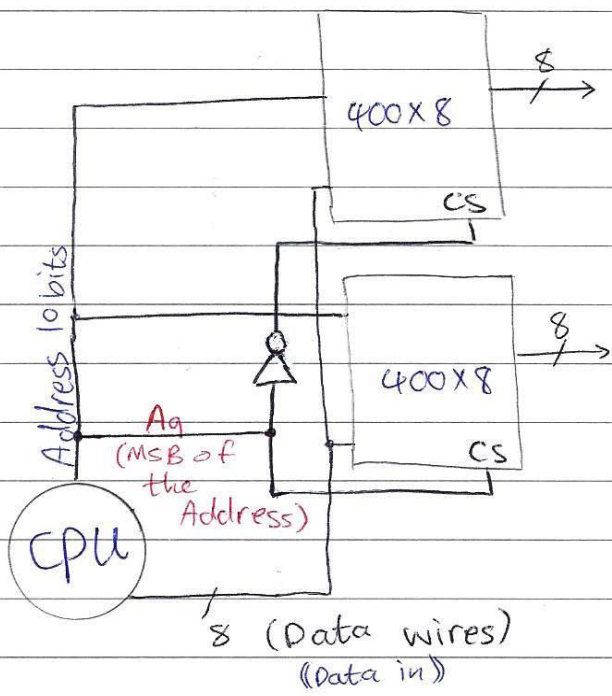 8
400×8
CS
Address 10bits
8
400×8
A9
(MSB of
the
Address)
CS
CPU
8 (Data wires)
((Data in))